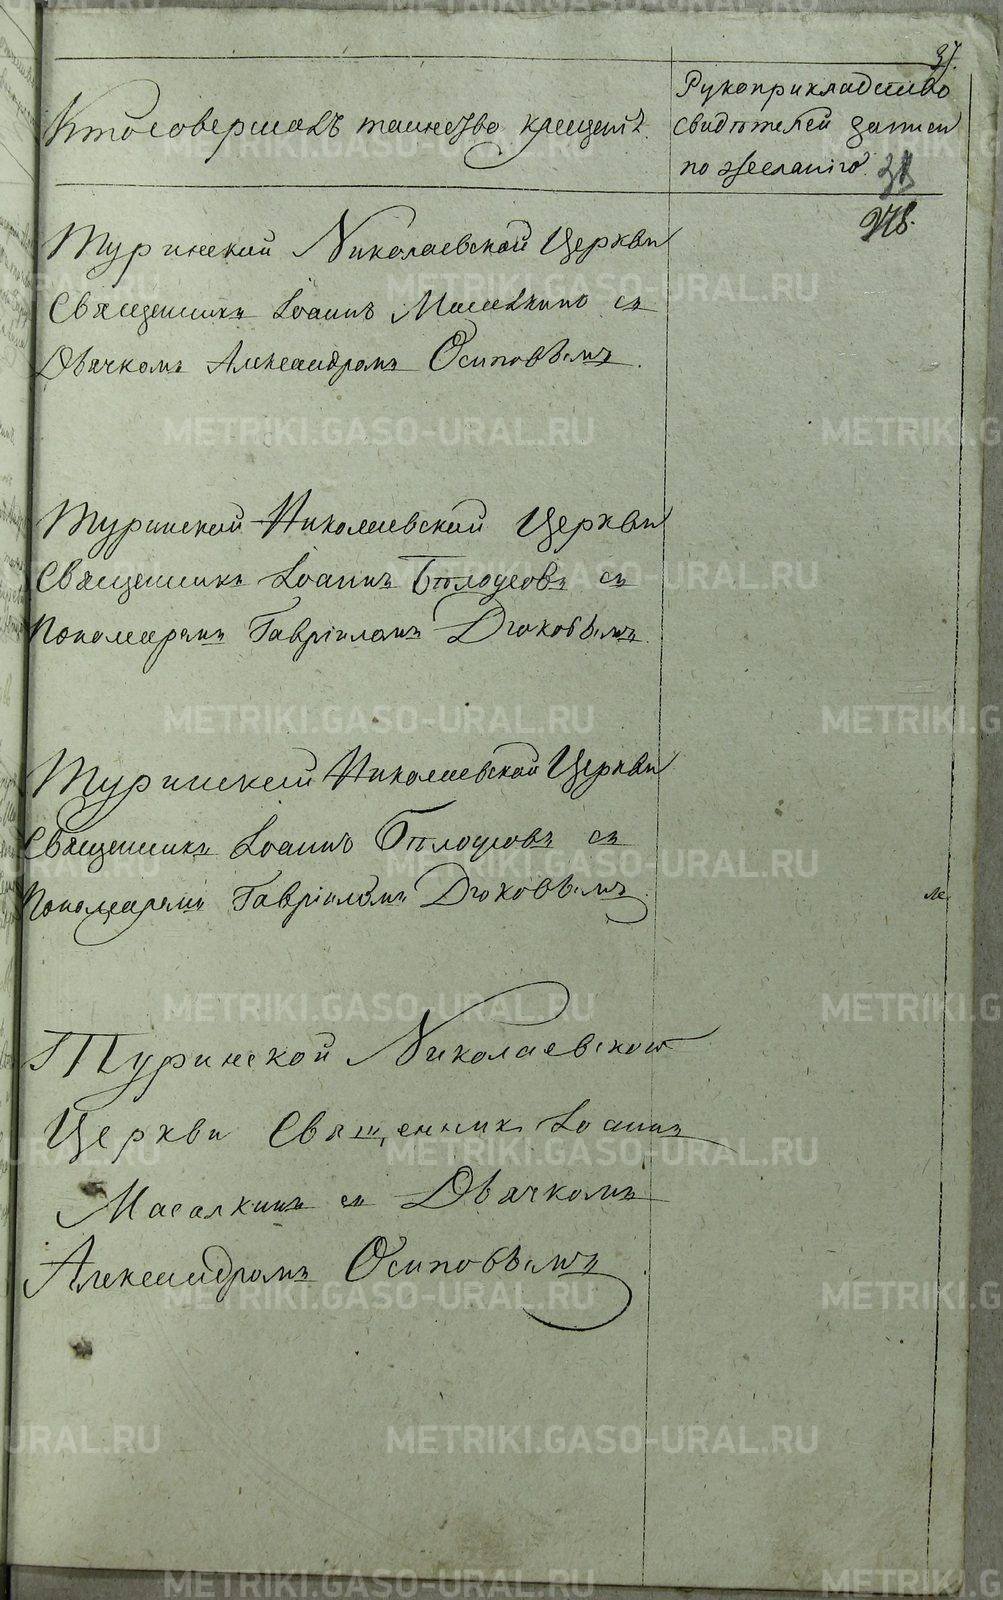 37.
Кто совершалъ таинство крещенія.
Рукоприкладство
свидѣтелей записи
по желанію.
Туринской Николаевской Церкви
Священникъ Іоаннъ Масалкинъ съ
Дьячкомъ Александромъ Осиповымъ.
Туринской Николаевской Церкви
Священникъ Іоаннъ Бѣлоусовъ съ
Пономаремъ Гавріиломъ Дюковымъ.
Туринской Николаевской Церкви
Священникъ Іоаннъ Бѣлоусовъ съ
Пономаремъ Гавріиломъ Дюковымъ.
Туринской Николаевской
Церкви Священникъ Іоаннъ
Масалкинъ съ Дьячкомъ
Александромъ Осиповымъ.
METRIKI.GASO-URAL.RU